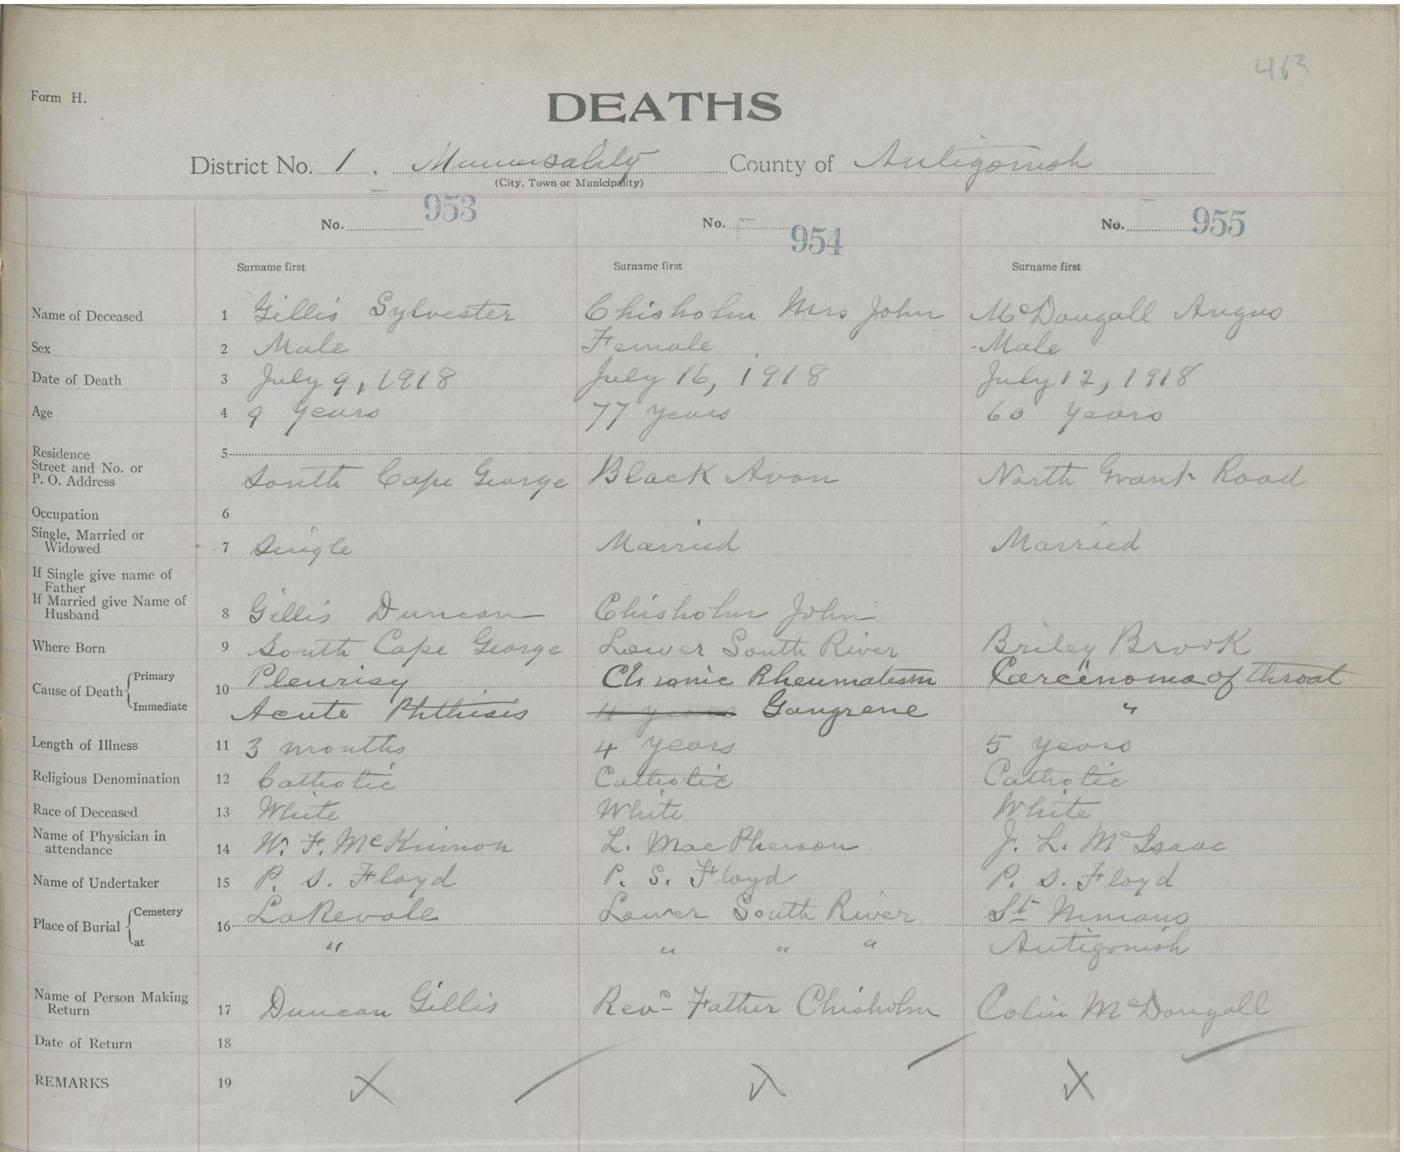 463
Form H.
DEATHS
District No. 1 , Municipality County of Antigonish
(City, Town or Municipality)
No. 953 No. 954 No. 955
Surname first Surname first Surname first
Name of Deceased 1 Gillis Sylvester Chisholm Mrs John McDougall Angus
Sex 2 Male Female Male
Date of Death 3 July 9, 1918 July 16, 1918 July 12, 1918
Age 4 9 Years 77 Years 60 Years
Residence 5
Street and No. or
P. O. Address South Cape George Black Avon North Grant Road
Occupation 6
Single, Married or
Widowed 7 Single Married Married
If Single give name of
Father
If Married give Name of
Husband 8 Gillis Duncan Chisholm John
Where Born 9 South Cape George Lower South River Briley Brook
Cause of Death { Primary 10 Pleurisy Chronic Rheumatism Carcinoma of throat
Immediate Acute Phthisis 4 years Gangrene "
Length of Illness 11 3 months 4 years 5 years
Religious Denomination 12 Catholic Catholic Catholic
Race of Deceased 13 White White White
Name of Physician in
attendance 14 W. F. McKinnon L. MacPherson J. L. McIsaac
Name of Undertaker 15 P. S. Floyd P. S. Floyd P. S. Floyd
Place of Burial { Cemetery 16 Lakevale Lower South River St Ninians
at " " " " Antigonish
Name of Person Making
Return 17 Duncan Gillis Revd Father Chisholm Colin McDougall
Date of Return 18
REMARKS 19